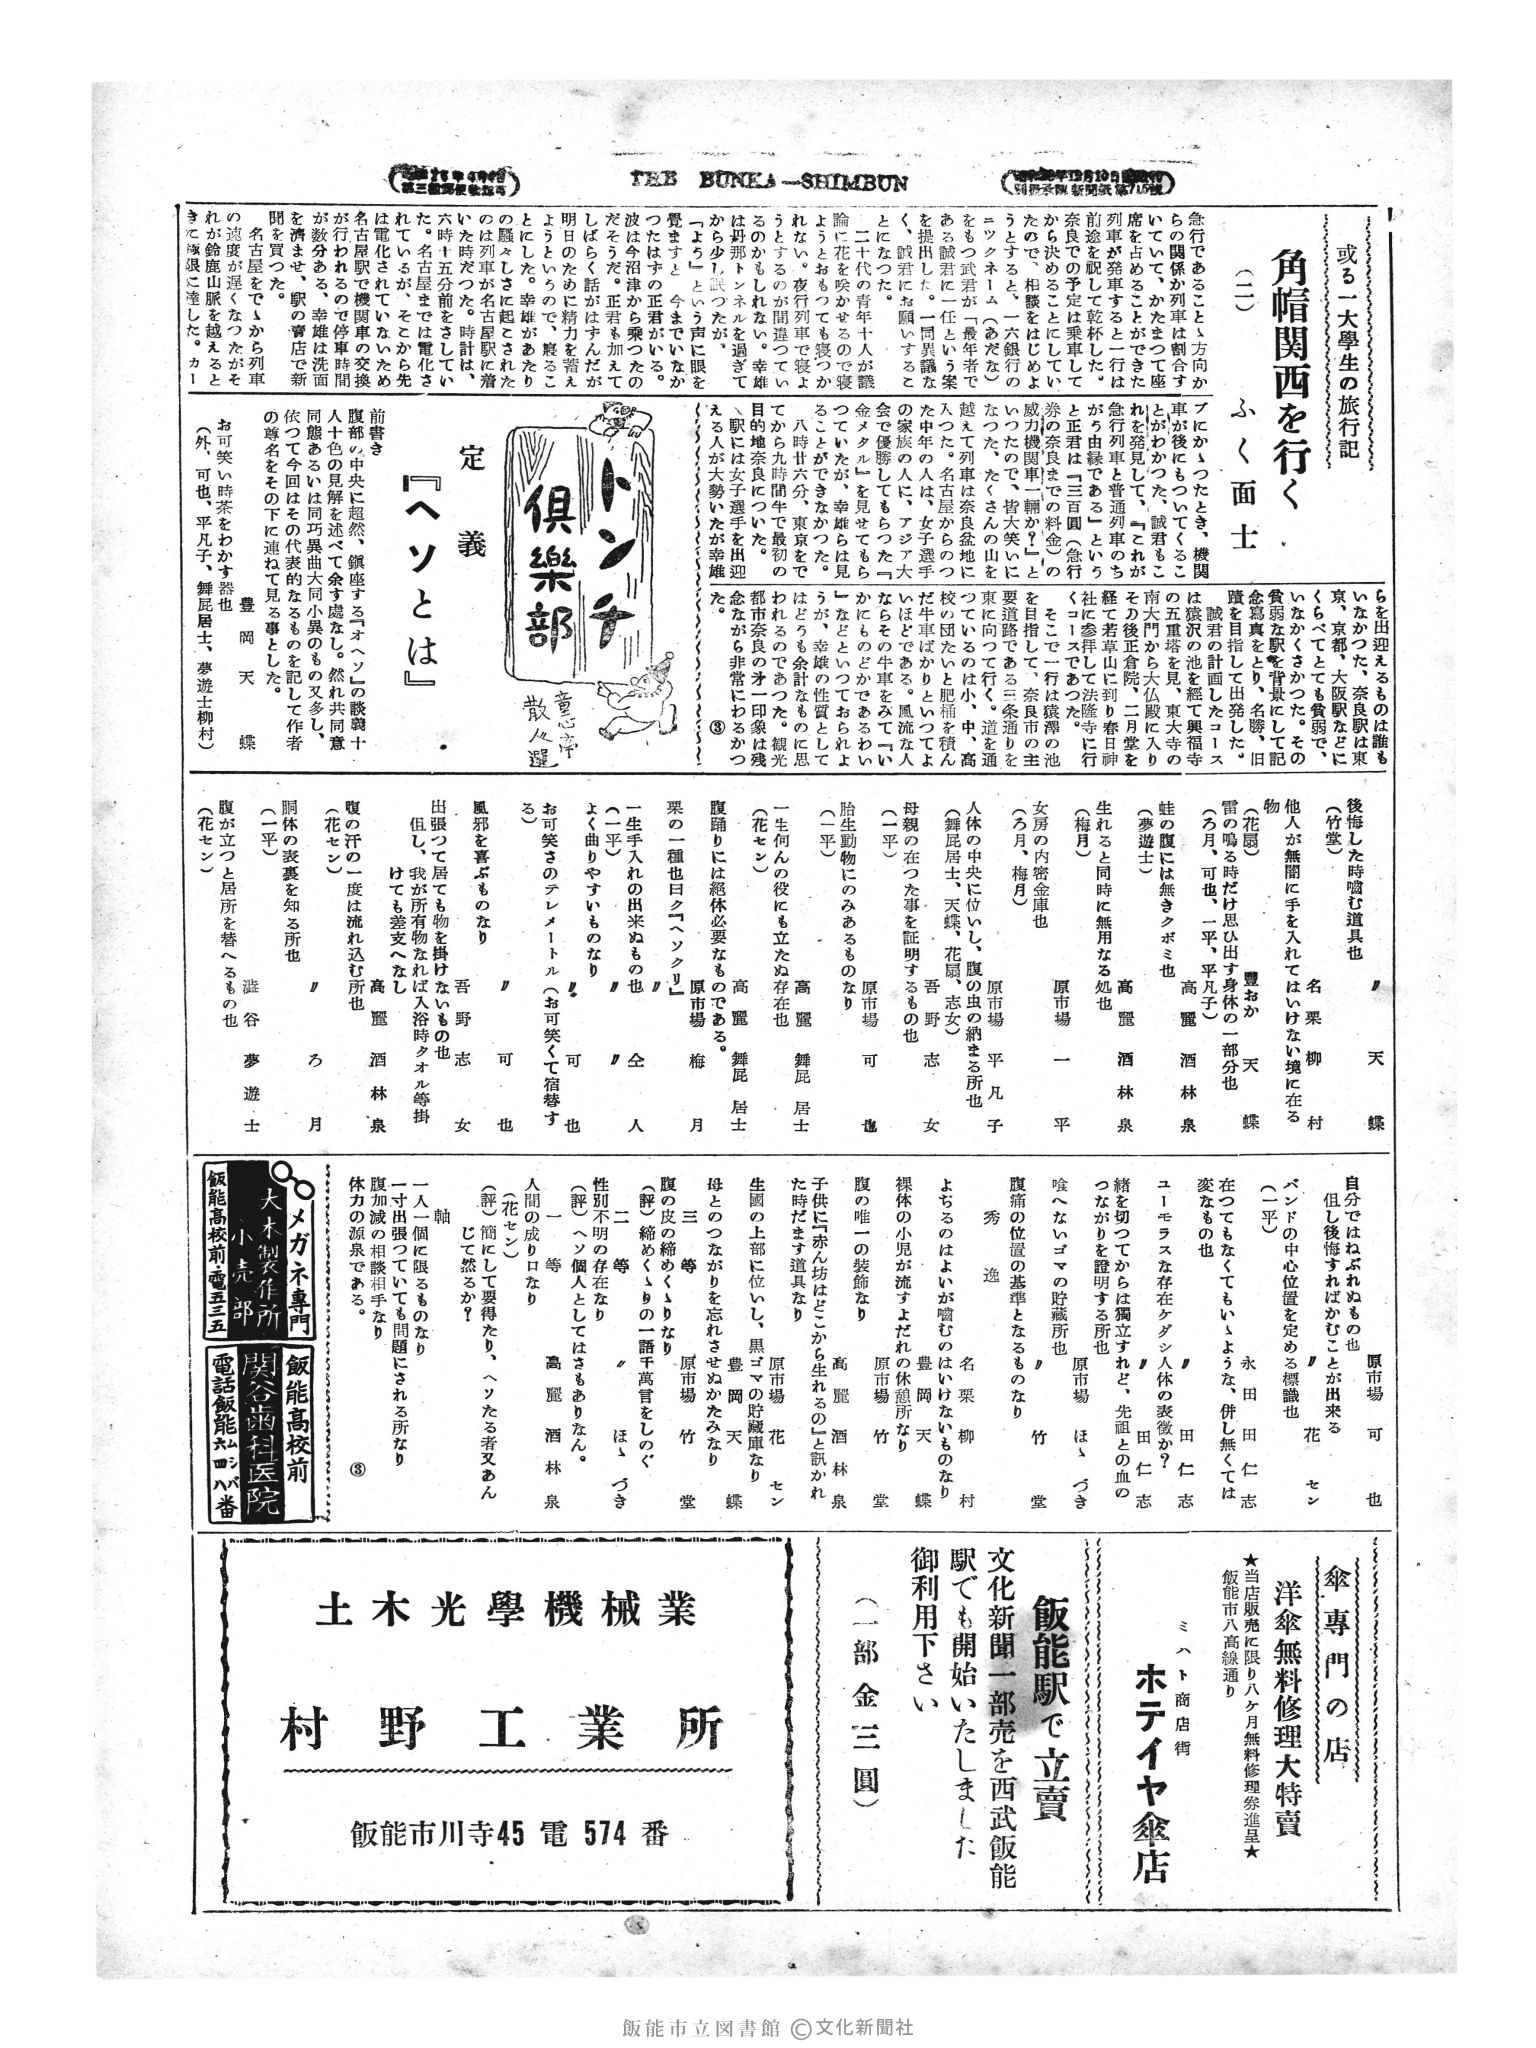 THE BUNKA—SHIMBUN
或る一大學生の旅行記
角帽関西を行く
(二)
ふく面士
急行であることゝ方向か
らの関係か列車は割合す
いていて、かたまつて座
席を占めることができた
列車が発車すると一行は
前途を祝して乾杯した。
奈良での予定は乗車して
から決めることにしてい
たので、相談をはじめよ
うとすると、一六銀行の
ニツクネーム(あだな)
をもつ武君が「最年者で
ある誠君に一任という案
を提出した。一同異議な
く、誠君にお願いするこ
とになつた。
二十代の青年十人が議
論に花を咲かせるので寝
ようとおもつても寝つか
れない。夜行列車で寝よ
うとするのが間違つてい
るのかもしれない。幸雄
は丹那トンネルを過ぎて
から少し眠つたが、
『よう』という声に眼を
覺ますと、今までいなか
つたはずの正君がいる。
波は今沼津から乗つたの
だそうだ。正君も加えて
しばらく話がはずんだが
明日のために精力を蓄え
ようというので、寢るこ
とにした。幸雄があたり
の騒々しさに起こされた
のは列車が名古屋駅に着
いた時だつた。時計は、
六時十五分前をさしてい
た。名古屋までは電化さ
れているが、そこから先
は電化されていないため
名古屋駅で機関車の交換
が行われるので停車時間
が数分ある、幸雄は洗面
を濟ませ、駅の賣店で新
聞を買つた。
名古屋をでゝから列車
の速度が遅くなつたがそ
れが鈴鹿山脈を越えると
きに極限に達した。カー
ブにかゝつたとき、機関
車が後にもついてくるこ
とがわかつた、誠君もこ
れを発見して、『これが
急行列車と普通列車のち
がう由縁である』という
と正君は『三百圓(急行
券の奈良までの料金)の
威力機関車一輛か?』と
いつたので、皆大笑いに
なつた、たくさんの山を
越えて列車は奈良盆地に
入つた。名古屋からのつ
た中年の人は、女子選手
の家族の人に、アジア大
会で優勝してもらつた『
金メタル』を見せてもら
つていたが、幸雄らは見
ることができなかつた。
八時廿六分、東京をで
てから九時間半で最初の
目的地奈良についた。
駅には女子選手を出迎
える人が大勢いたが幸雄
らを出迎えるものは誰も
いなかつた、奈良駅は東
京、京都、大阪駅などに
くらべてとても貧弱で、
いなかくさかつた。その
貧弱な駅を背景にして記
念寫真をとり、名勝、旧
蹟を目指して出発した。
誠君の計画したコース
は猿沢の池を經て興福寺
の五重塔を見、東大寺の
南大門から大仏殿に入り
その後正倉院、二月堂を
経て若草山に到り春日神
社に参拝して法隆寺に行
くコースであつた。
そこで一行は猿澤の池
を目指して、奈良市の主
要道路である三条通りを
東に向つて行く。道を通
つているのは小、中、高
校の団たいと肥桶を積ん
だ牛車ばかりといつてよ
いほどである。風流な人
ならその牛車をみて『い
かにものどかであるわい
』などといつておられよ
うが、幸雄の性質として
はどうも余計なものに思
われるのであつた。観光
都市奈良の才一印象は残
念ながら非常にわるかつ
た。
③
トンチ
倶樂部
童心亭
散人選
定義
『ヘソとは』
前書き
腹部の中央に超然、鎭座する『オヘソ』の談義十
人十色の見解を述べて余す處なし。然れ共同意
同態あるいは同巧異曲大同小異のもの又多し、
依つて今回はその代表的なるものを記して作者
の尊名をその下に連ねて見る事とした。
豊岡天蝶
お可笑い時茶をわかす器也
(外、可也、平凡子、舞屁居士、夢遊士柳村)
〃天蝶
後悔した時嚙む道具也
(竹堂)
名栗柳村
他人が無闇に手を入れてはいけない境に在る
物
(花扇)
豐おか天蝶
雷の鳴る時だけ思ひ出す身体の一部分也
(ろ月、可也、一平、平凡子)
高麗酒林泉
蛙の腹には無きクボミ也
(夢遊士)
高麗酒林泉
生れると同時に無用なる処也
(梅月)
原市場一平
女房の内密金庫也
(ろ月、梅月)
原市場平凡子
人体の中央に位いし、腹の虫の納まる所也
(舞屁居士、天蝶、花扇、志女)
吾野志女
母親の在つた事を証明するもの也
(一平)
原市場可也
胎生動物にのみあるものなり
(一平)
高麗舞屁居士
一生何んの役にも立たぬ存在也
(花セン)
高麗舞屁居士
腹踊りには絕体必要なものである。
原市場梅月
栗の一種也曰ク『ヘソクリ』
〃〃仝人
一生手入れの出来ぬもの也
(一平)
よく曲りやすいものなり
〃可也
お可笑さのテレメートル(お可笑くて宿替す
る)
〃可也
風邪を喜ぶものなり
吾野志女
出張つて居ても物を掛けないもの也
但し、我が所有物なれば入浴時タオル等掛
けても差支へなし
高麗酒林泉
腹の汗の一度は流れ込む所也
(花セン)
〃ろ月
胴体の表裏を知る所也
(一平)
澁谷夢遊士
腹が立つと居所を替へるもの也
(花セン)
原市場可也
自分ではねぶれぬもの也
但し後悔すればかむことが出来る
〃花セン
バンドの中心位置を定める標識也
(一平)
永田田仁志
在つてもなくてもいゝような、併し無くては
変なもの也
〃田仁志
ユーモラスな存在ケダシ人体の表徴か?
〃田仁志
緒を切つてからは獨立すれど、先祖との血の
つながりを證明する所也
原市場ほゝづき
喰へないゴマの貯蔵所也
〃竹堂
腹痛の位置の基準となるものなり
秀逸
名栗柳村
よぢるのはよいが嚙むのはいけないものなり
豊岡天蝶
裸体の小児が流すよだれの休憩所なり
原市場竹堂
腹の唯一の裝飾なり
高麗酒林泉
子供に『赤ん坊はどこから生れるの』と訊かれ
た時だます道具なり
原市場花セン
生國の上部に位いし、黒ゴマの貯蔵庫なり
豊岡天蝶
母とのつながりを忘れさせぬかたみなり
三等
原市場竹堂
腹の皮の締めくゝりなり
(評)締めくゝりの一語千萬言をしのぐ
二等
〃ほゝづき
性別不明の存在なり
(評)ヘソ個人としてはさもありなん。
一等
高麗酒林泉
人間の成り口なり
(花セン)
(評)簡にして要得たり、ヘソたる者又あん
じて然るか?
軸
一人一個に限るものなり
一寸出張つていても問題にされる所なり
腹加減の相談相手なり
体力の源泉である。
③
メガネ専門
大木製作所
小売部
飯能高校前・電五三五
飯能高校前
関谷歯科医院
電話飯能六四八番
ムシバ
傘専門の店
洋傘無料修理大特賣
★当店販売に限り八ケ月無料修理券進呈★
飯能市八高線通り
ミハト商店街
ホテイヤ傘店
飯能駅で立賣
文化新聞一部売を西武飯能
駅でも開始いたしました
御利用下さい
(一部金三圓)
土木光學機械業
村野工業所
飯能市川寺45 電 574 番
飯能市立図書館 ©文化新聞社